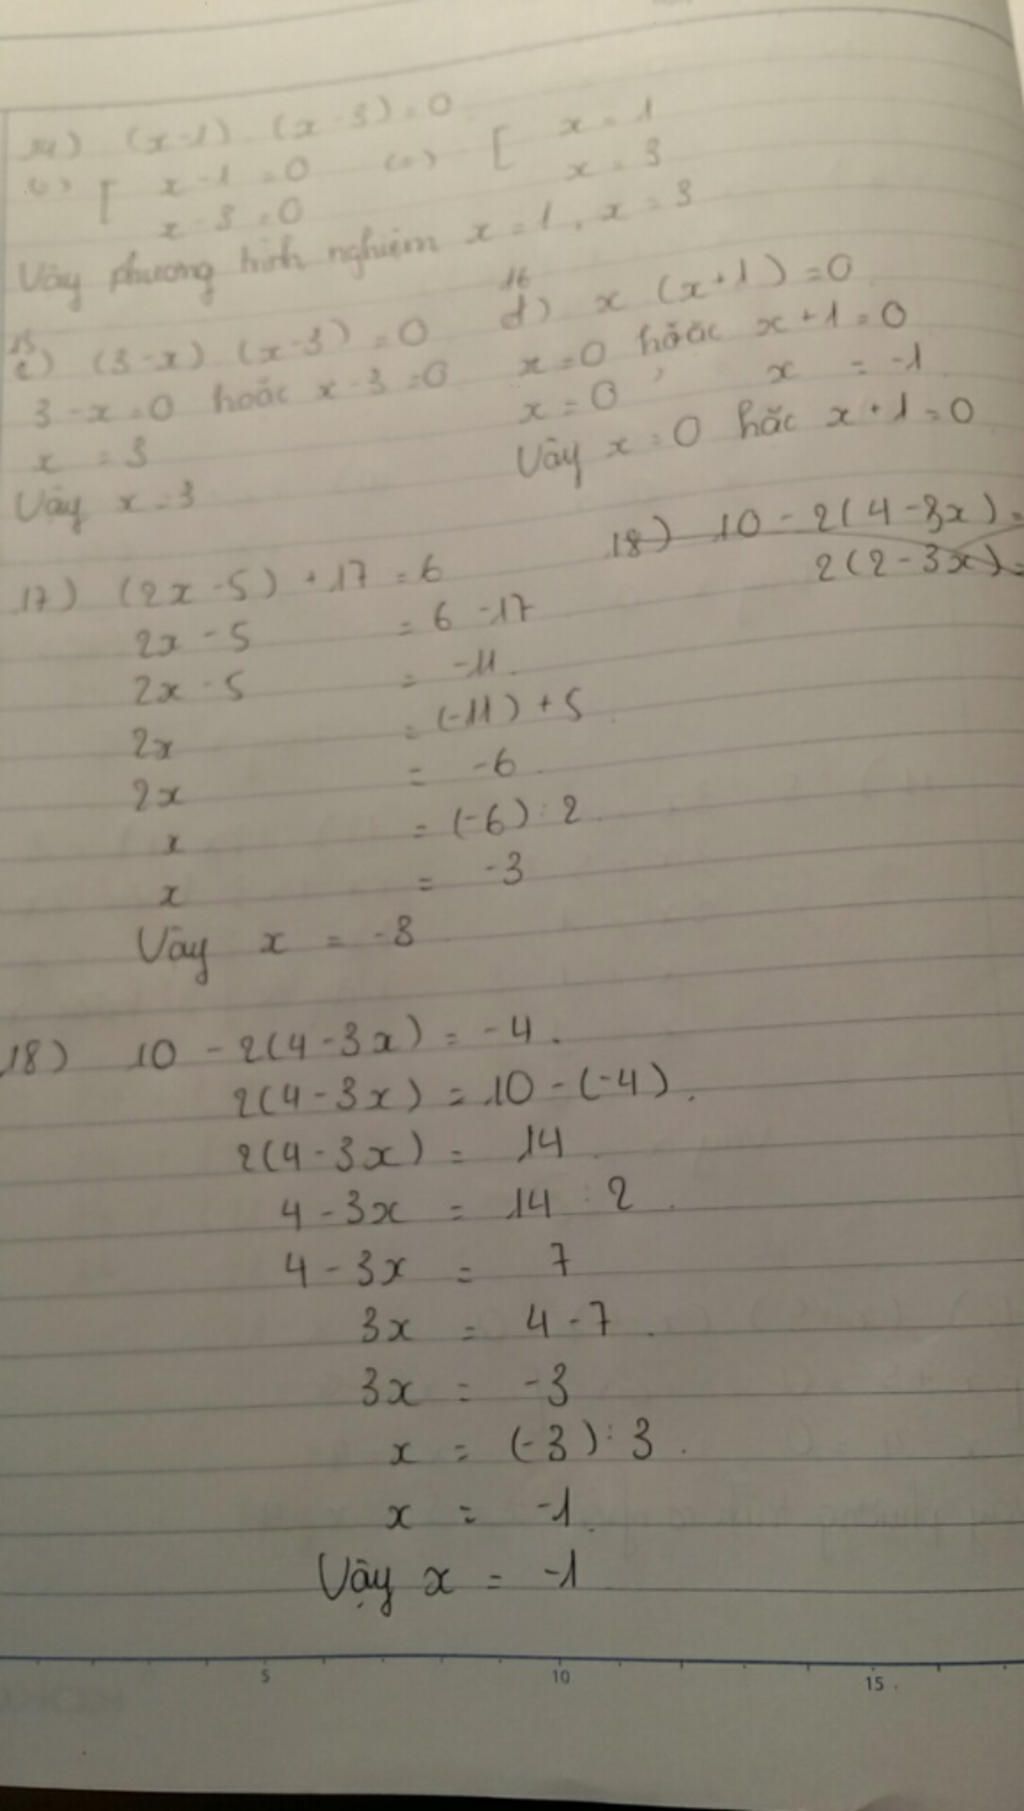 14) (x-1) (x-3)=0
<=> [ x-1=0 <=> [ x=1
x-3=0 x=3
Vây phương trình nghiệm x=1, x=3
15
c) (3-x) (x-3)=0
3-x=0 hoăc x-3=0
x=3
Vây x=3
16
d) x (x+1)=0
x=0 hăăc x+1=0
x=0, x=-1
Vây x=0 hăc x+1=0
17) (2x-5)+17=6
2x-5=6-17
2x-5=-11
2x=(-11)+5
2x=-6
x=(-6):2
x=-3
Vây x=-3
18) 10-2(4-3x)=
2(2-3x)=
18) 10-2(4-3x)=-4.
2(4-3x)=10-(-4).
2(4-3x)=14
4-3x=14:2.
4-3x=7
3x=4-7.
3x=-3
x=(-3):3.
x=-1.
Vậy x=-1
5 10 15